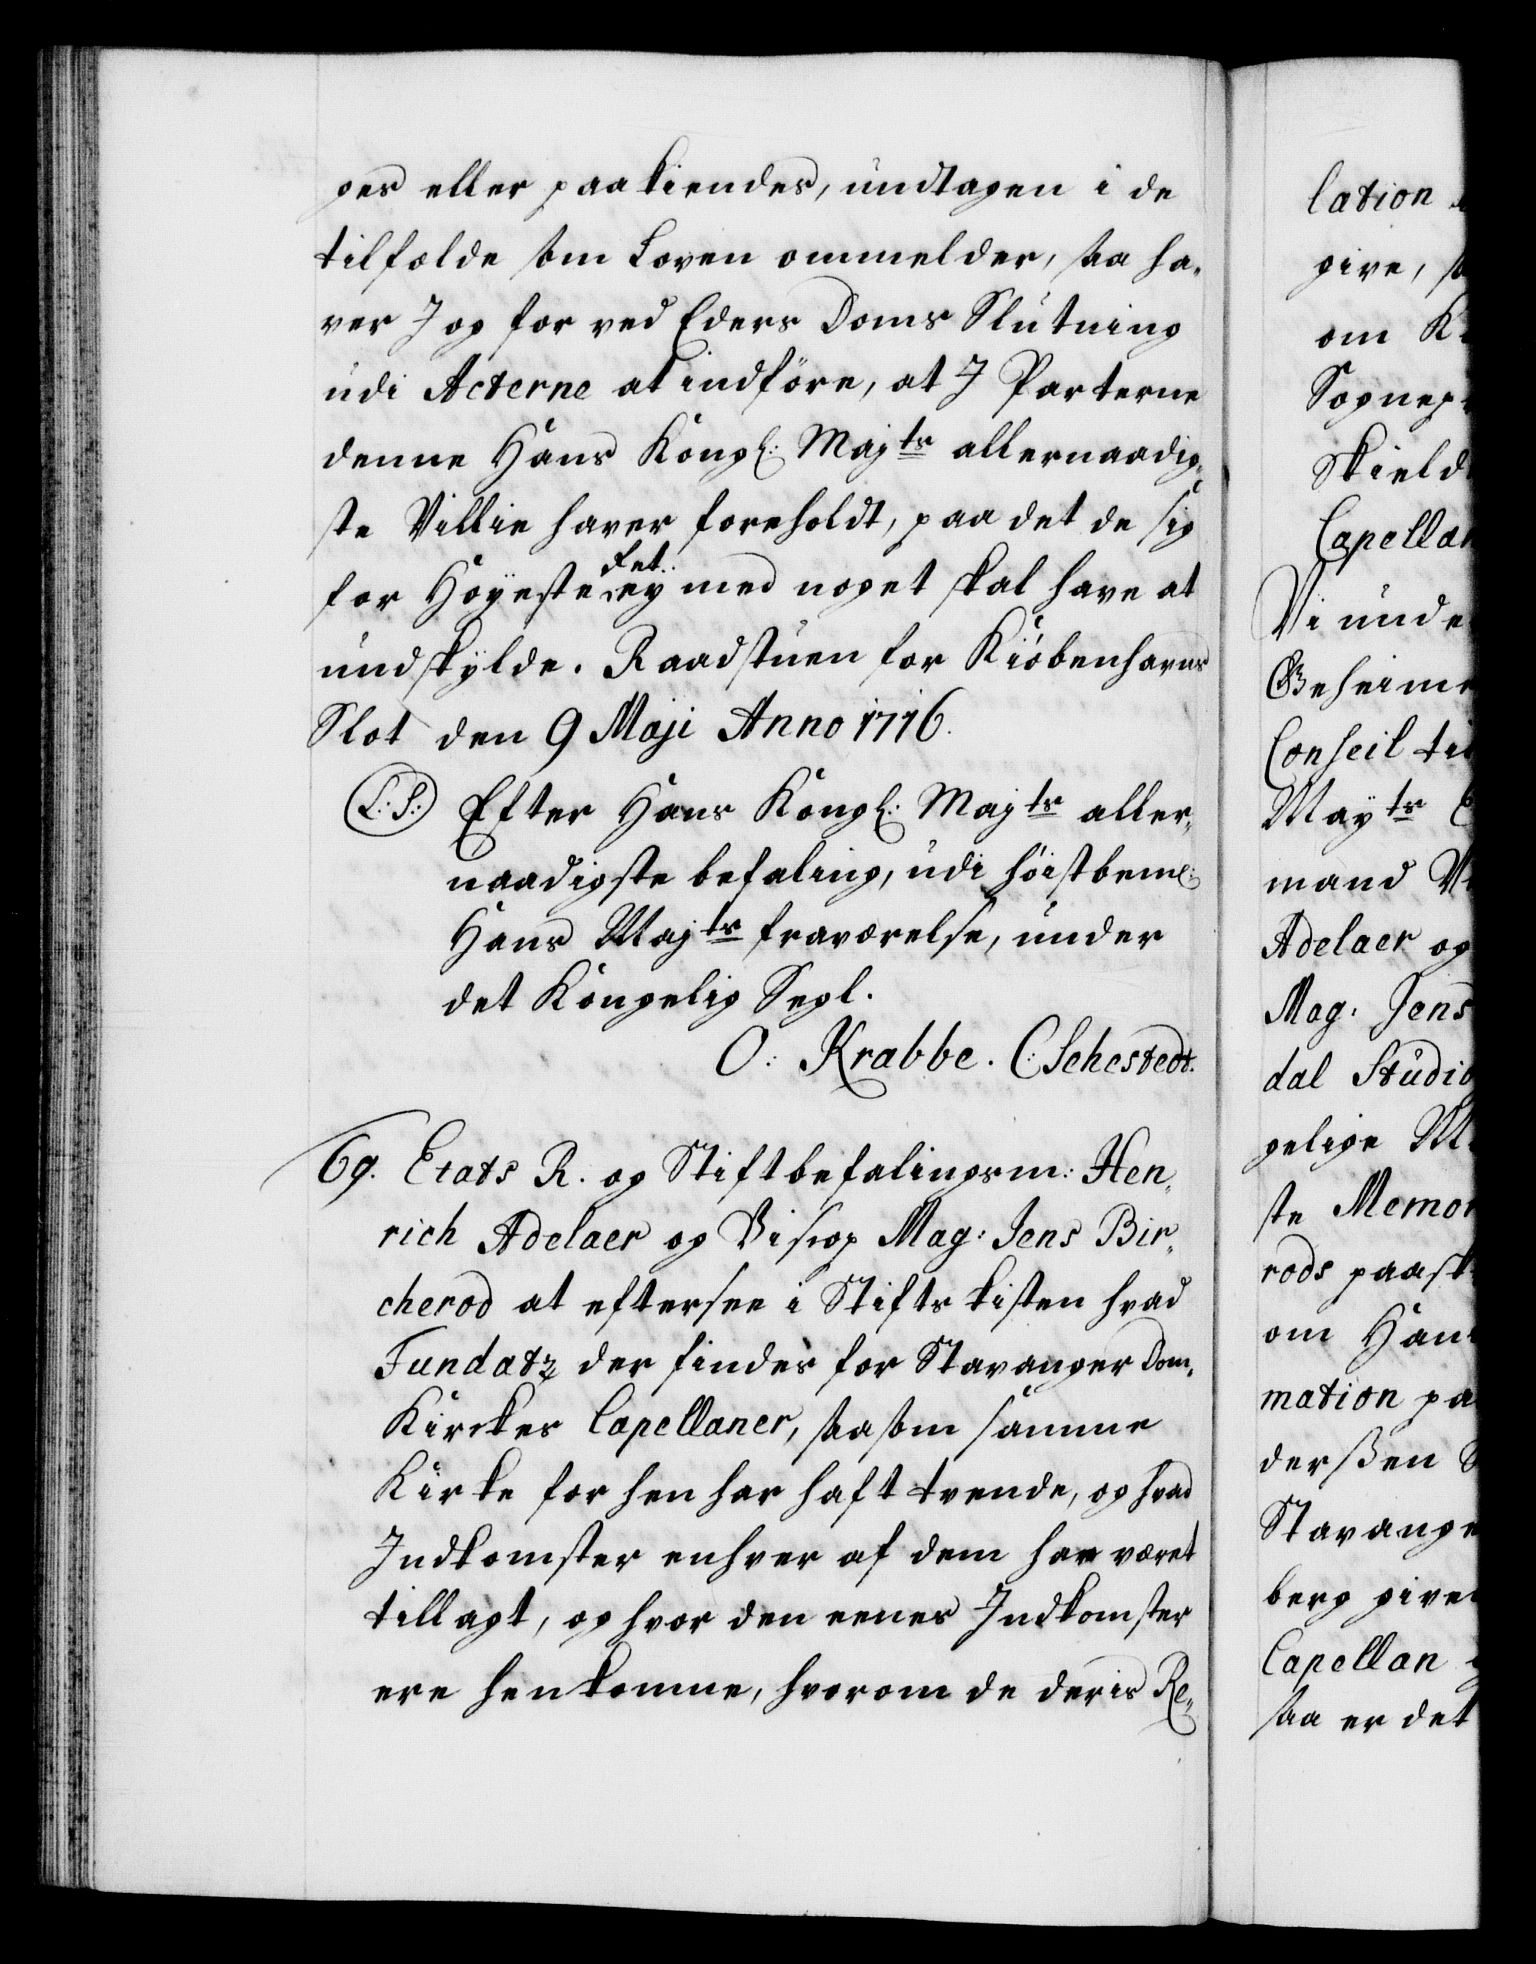 ges eller paakiendes, undtagen i de
tilfælde som Loven ommelder, saa ha-
ver I og for ved Eders Doms Slutning
udi Acterne at indföre, at I Parterne
denne Hans Kongl: Majts allernaadig-
ste Villie haver foreholdt, paa det de sig
for Höyeste Ret ey med noget skal have at
undskylde. Raadstuen for Kiöbenhavns
Slot den 9 Maji Anno 1716.
L: S: Efter Hans Kongl: Majts aller-
naadigste befaling, udi höistbeml:
Hans Majts fraværelse, under
det Kongelig Segl.
O: Krabbe. C: Sehestedt.
69. Etats R. og Stiftbefalingsm: Hen-
rich Adelaer og Biscop Mag: Jens Bir-
cherod at eftersee i Stifts kisten hvad
Fundatz der findes for Stavanger Dom-
Kirckes Capellaner, saasom samme
Kirke forhen har haft tvende, og hvad
Indkomster enhver af dem har været
tillagt, og hvor den eenes Indkomster
ere henkomne, hvorom de deris Re-
lation
give,
om
Sognep
Skield
Capellan
Vi unde
Geheime
Conseil til
Mayts
mand
Adelaer og
Mag: Jens
dal Studio
gelige
ste Memor
rods paask
om Hans
mation pa
derßen
Stavange
berg give
Capellan
saa er det